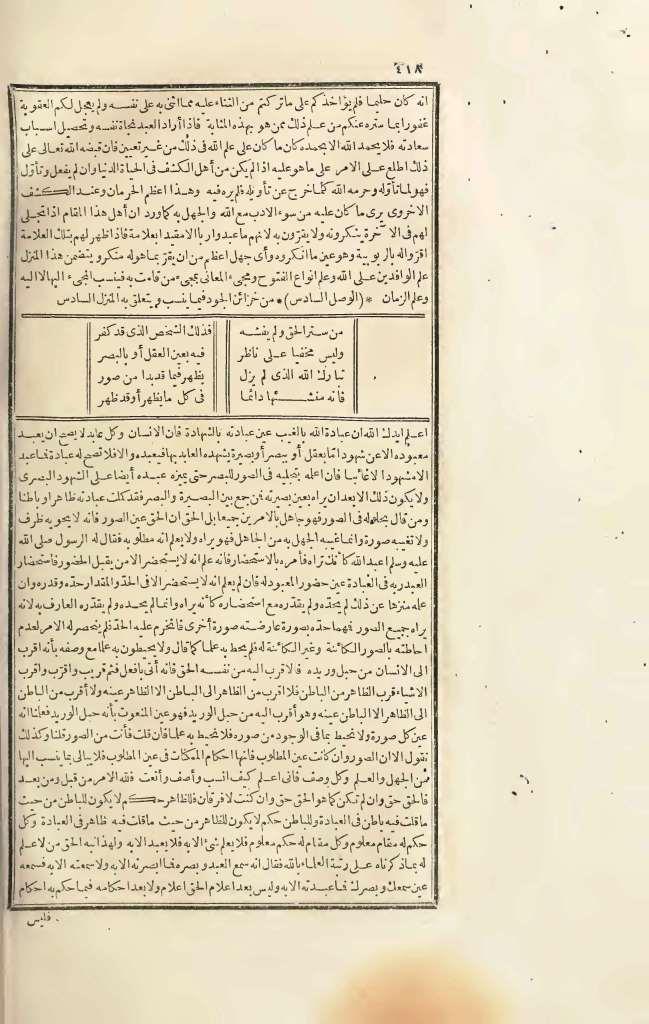 ٤١٨
انه كان حليما فلم يؤاخذكم على ماتركتم من الثناء عليه مما اثنى به على نفسه ولم يعجل لكم العقوبة
غفورا بما ستره عنكم من علم ذلك ممن هو بهذه المثابة فاذا أراد العبد نجاة نفسه وتحصيل اسباب
سعادته فلا يحمد الله الا بحمده كان ما كان على علم الله فى ذلك من غير تعيين فان قبضه الله تعالى على
ذلك اطلع على الامر على ما هو عليه اذا لم يكن من أهل الكشف فى الحياة الدنيا وان لم يفعل وتأوّل
فهو لما تأوّله وحرمه الله كما خرج عن تأويله فلم يره فيه وهذا اعظم الحرمان وعند الكشف
الاخروى يرى ما كان عليه من سوء الادب مع الله والجهل به كما ورد ان أهل هذا المقام اذا تجلى
لهم فى الآخرة ينكرونه ولا يقرّون به لانهم ما عبدوا ربا الا مقيدا بعلامة فاذا ظهر لهم بتلك العلامة
اقرّوا له بالربوبية وهو عين ما انكروه وأى جهل اعظم من ان يقرّ بما هو له منكر ويتضمن هذا المنزل
علم الوافدين على الله وعلم انواع الفتوح ومجىء المعانى بمجىء من قامت به فينسب المجىء اليها لا اليه
وعلم الزمان *(الوصل السادس)* من خزائن الجود فيما يناسبه ويتعلق به المنزل السادس
من ستر الحق ولم يفشه فذلك الشخص الذى قد كفر
وليس مخفيا على ناظر فيه بعين العقل أو بالبصر
تبارك الله الذى لم يزل يظهر فيما قد بدا من صور
فانه منشئها دائما فى كل ما يظهر أو قد ظهر
اعلم ايدك الله ان عبادة الله بالغيب عين عبادته بالشهادة فان الانسان وكل عابد لا يصح ان يعبد
معبوده الا عن شهود امّا بعقل أو ببصر أو بصيرة يشهده العابد بها فيعبده والا فلا تصح له عبادة فما عبد
الا مشهودا لا غائبا فان اعلمه بتجليه فى الصور للبصر حتى يميزه عبده أيضا على الشهود البصرى
ولا يكون ذلك الا بعد ان يراه بعين بصيرته فمن جمع بين البصيرة والبصر فقد كملت عبادته ظاهرا وباطنا
ومن قال بحلوله فى الصور فهو جاهل بالامرين جميعا بل الحق ان الحق عين الصور فانه لا يحويه ظرف
ولا تغيبه صورة وانما غيبه الجهل به من الجاهل فهو يراه ولا يعلم انه مطلوبه فقال له الرسول صلى الله
عليه وسلم اعبد الله كأنك تراه فأمره بالاستحضار فانه علم انه لا يستحضر الا من يقبل الحضور فاستحضار
العبد ربه فى العبادة عين حضور المعبود له فان لم يعلم انه لا يستحضر الا فى الحدّ والمقدار حدّه وقدره وان
علمه منزها عن ذلك لم يحدّه ولم يقدّره مع استحضاره كأنه يراه وانما لم يحدده ولم يقدّره العارف به لانه
يراه جميع الصور فمهما حدّه بصورة عارضته صورة أخرى فانخرم عليه الحدّ فلم ينحصر له الامر لعدم
احاطته بالصور الكائنة وغير الكائنة له فلم يحط به علما كما قال ولا يحيطون به علما مع وصفه بأنه اقرب
الى الانسان من حبل وريده فلا قرب اليه من نفسه الحق فانه أتى بأفعل فثم قريب واقرب واقرب
الاشياء قرب الظاهر من الباطن فلا اقرب من الظاهر الى الباطن الا الظاهر عينه ولا أقرب من الباطن
الى الظاهر الا الباطن عينه وهو أقرب اليه من حبل الوريد فهو عين المنعوت بأنه حبل الوريد فعلمنا انه
عين كل صورة ولا نحيط بما فى الوجود من صور فلا نحيط به علما فان قلت فأنت من الصور قلنا وكذلك
نقول الا ان الصور وان كانت عين المطلوب فانها احكام الممكنات فى عين المطلوب فلا يبالى بما ينسب اليها
من الجهل والعلم وكل وصف فانى اعلم كيف انسب وأصف وأنعت فلله الامر من قبل ومن بعد
فالحق حق وان لم تكن كما هو الحق حق وان كنت لا فرقان فللظاهر حكم لا يكون للباطن من حيث
ما قلت فيه باطن فى العبادة وللباطن حكم لا يكون للظاهر من حيث ما قلت فيه ظاهر فى العبادة وكل
حكم له مقام معلوم وكل مقام له حكم معلوم فلا يعلم شئ الا به فلا يعبد الا به ولهذا نبه الحق من لا علم
له بما ذكرناه على رتبة العلماء بالله فقال انه سمع العبد وبصره فما ابصرته الا به ولا سمعته الا به فسمعه
عين سمعك وبصرك فما عبدته الا به وليس بعد اعلام الحق اعلام ولا بعد احكامه فيما حكم به احكام
فليس